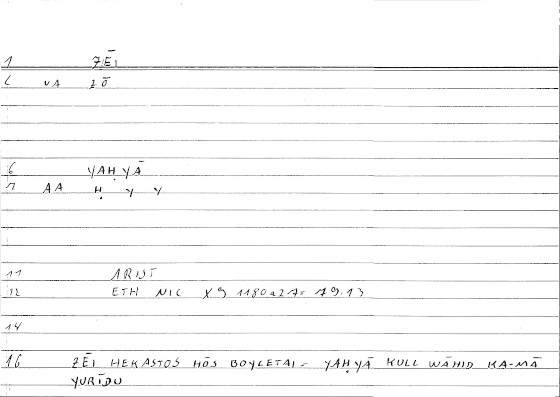 1 ZĒI
2 VA ZŌ
6 YAḤYĀ
7 AA Ḥ Y Y
11 ARIST
12 ETH NIC X 9 1180a27=
14
16 ZĒI HEKASTOS HŌS BOYLETAI = YAḤYĀ KULL WĀHID KA-MĀ
YURĪDU